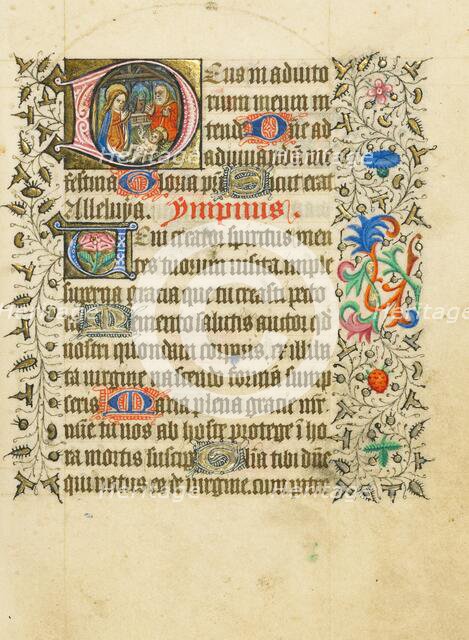 Deus in adiuto
rium meum in
tende Dne ad
adiuuandum me
festina Gloria pri Sicut erat
Alleluya. Ympnus.
Veni creator spiritus men
tes tuorum uisita imple
superna gratia que tu creasti pecto
ra Memento salutis auctor qd
nostri quondam corporis ex illiba
ta uirgine nascendo formā sump
seris Maria plena gratie mr
misericordie tu nos ab hoste protege ī ho
ra mortis suscipe Gloria tibi dñe
qui natus es de uirgine cum patre
Heritage